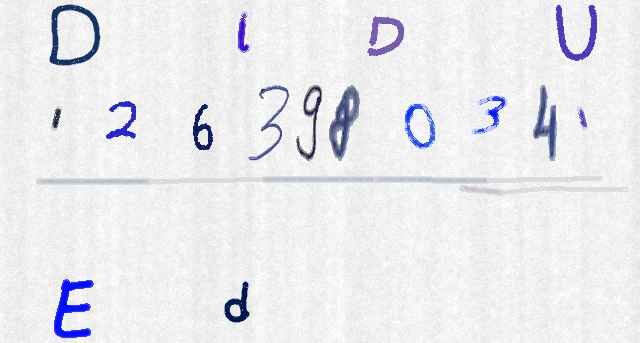 D I D U
1 2 6 3 9 8 0 3 4 1
E d